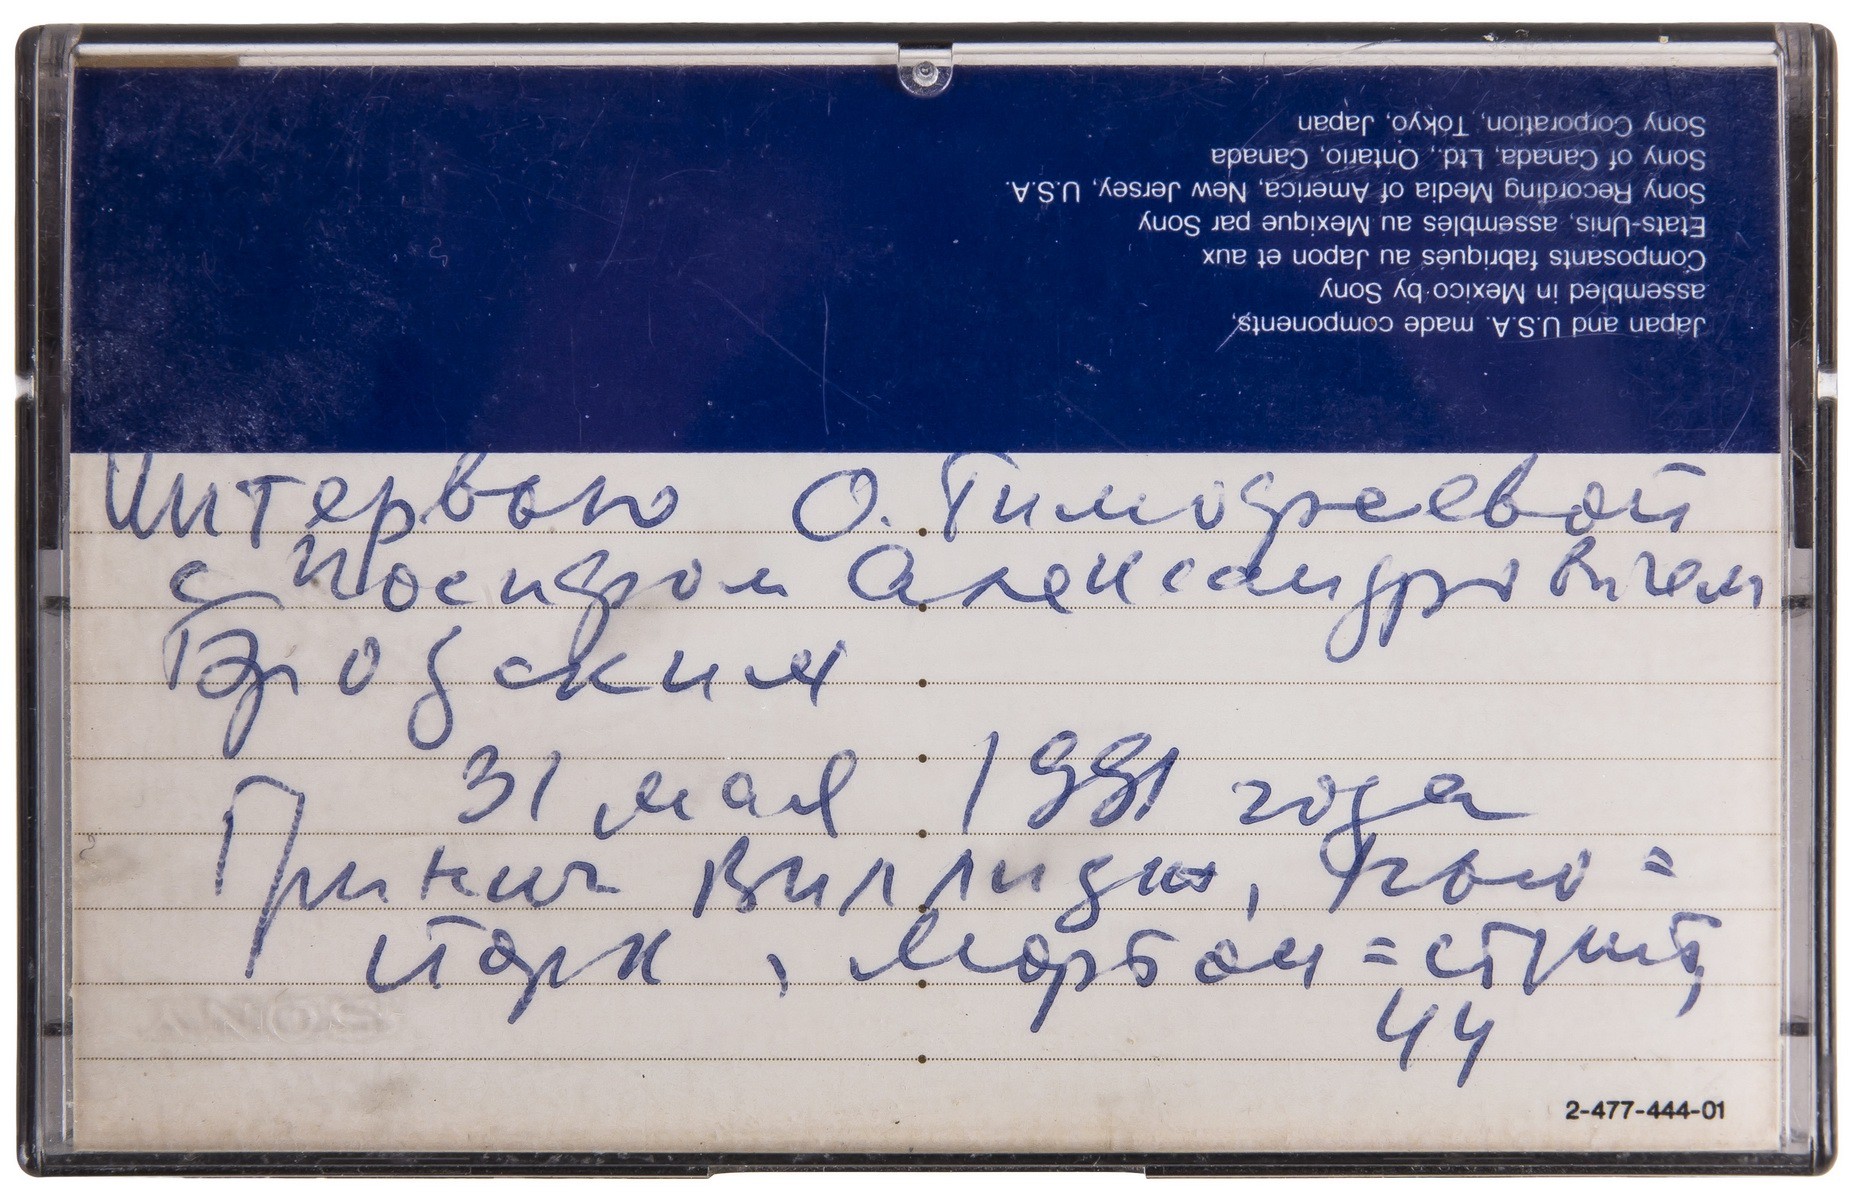 Japan and U.S.A. made components,
assembled in Mexico by Sony
Composants fabriqués au Japon et aux
Etats-Unis, assemblés au Mexique par Sony
Sony Recording Media of America, New Jersey, U.S.A.
Sony of Canada, Ltd., Ontario, Canada
Sony Corporation, Tokyo, Japan
Интервью О. Тимофеевой
с Иосифом Александровичем
Бродским
31 мая 1991 года
Гринич Виллидж, Нью=
Йорк, Мортон=стрит,
44
SONY
2-477-444-01